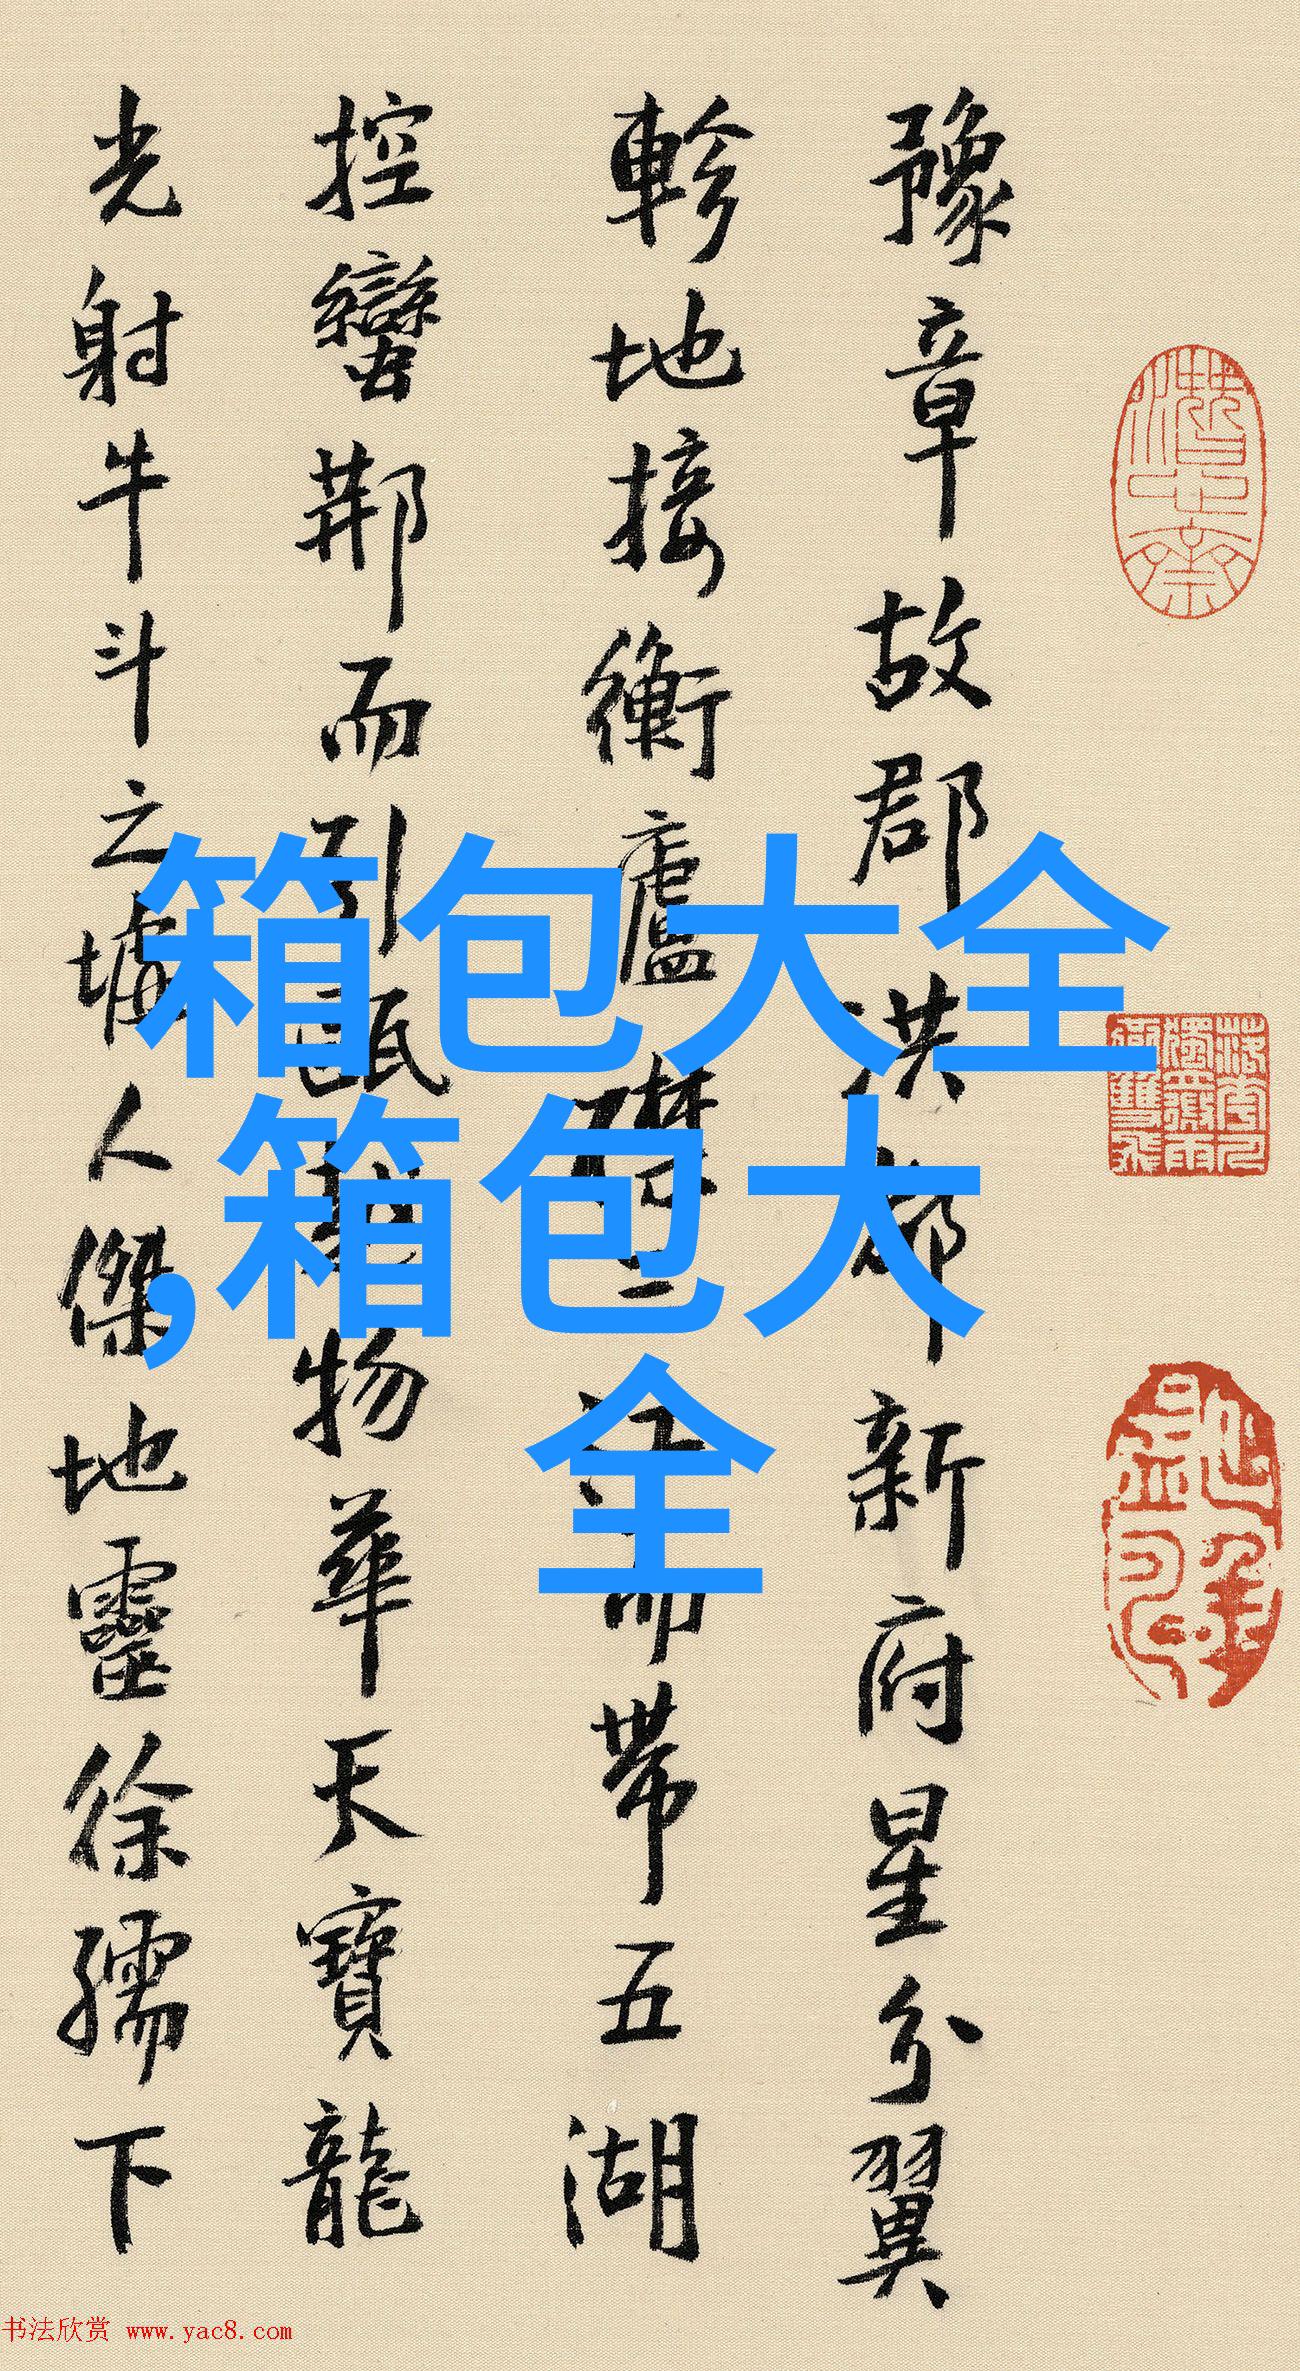 豫章故郡洪都新府星分翼
軫地接衡廬襟三江而帶五湖
控蠻荊而引甌越物華天寶龍
光射牛斗之墟人傑地靈徐孺下
箱包大全
,箱包大
全
书法欣赏 www.yac8.com